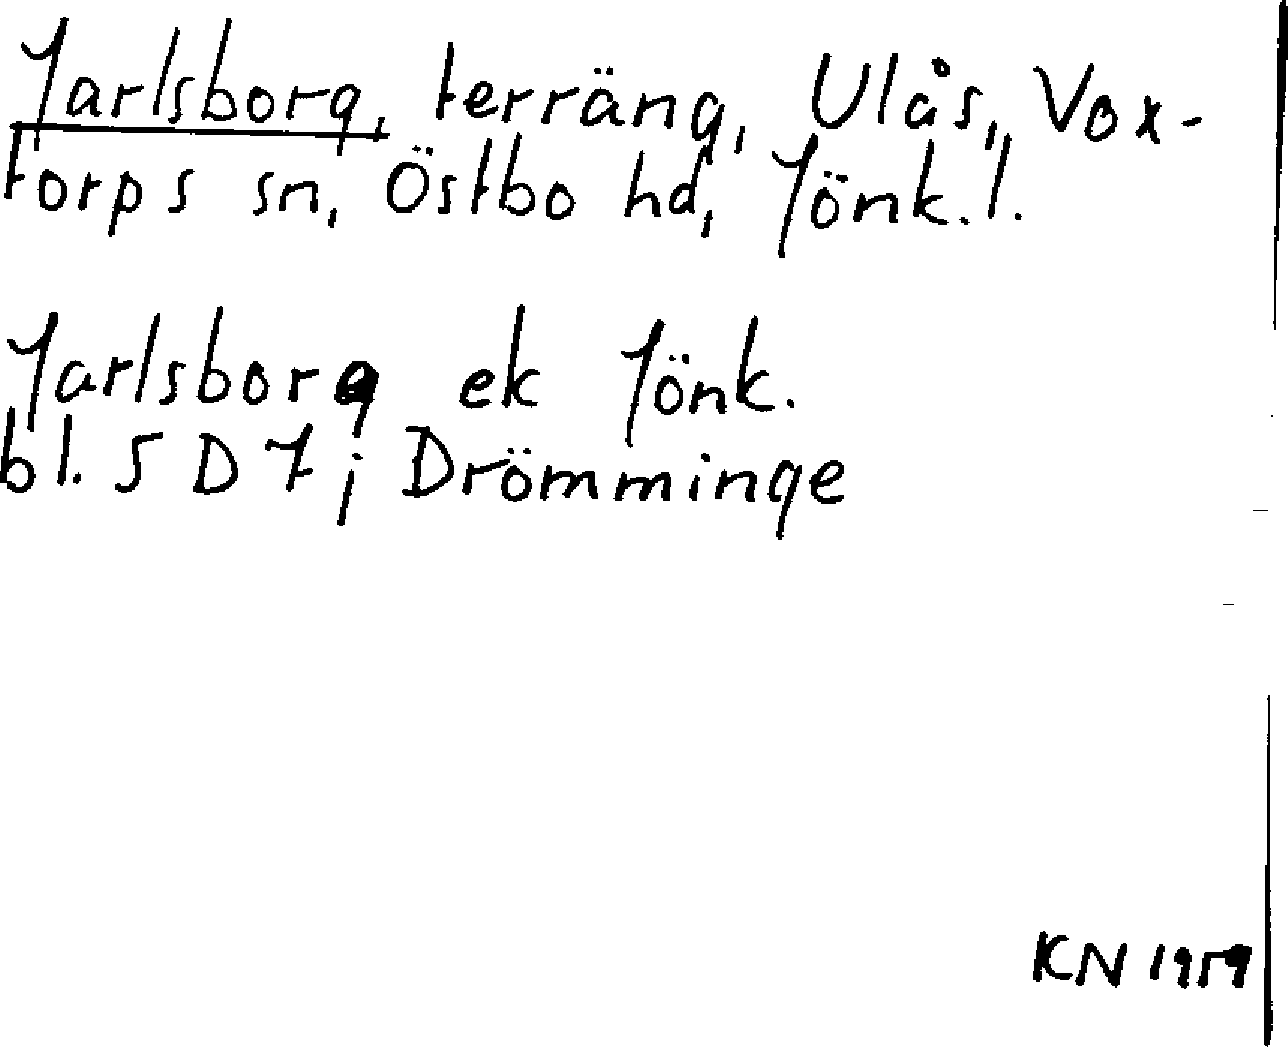 Jarlsborg, terräng, Ulås, Vox-
torps sn, Östbo hd, Jönk.l.
Jarlsborg ek Jönk.
bl. 5 D 7 ; Drömminge
KN 1959